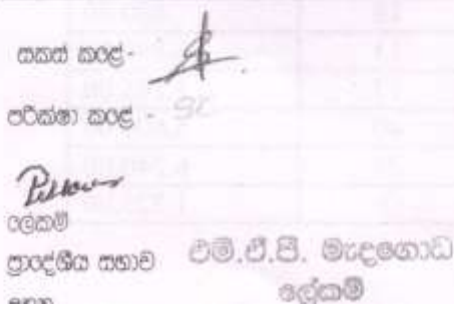 සකස් කළේ -
පරීක්ෂා කළේ -
ලේකම්
ප්‍රාදේශීය සභාව
එම්.ඒ.පී. මැදගොඩ
ලේකම්